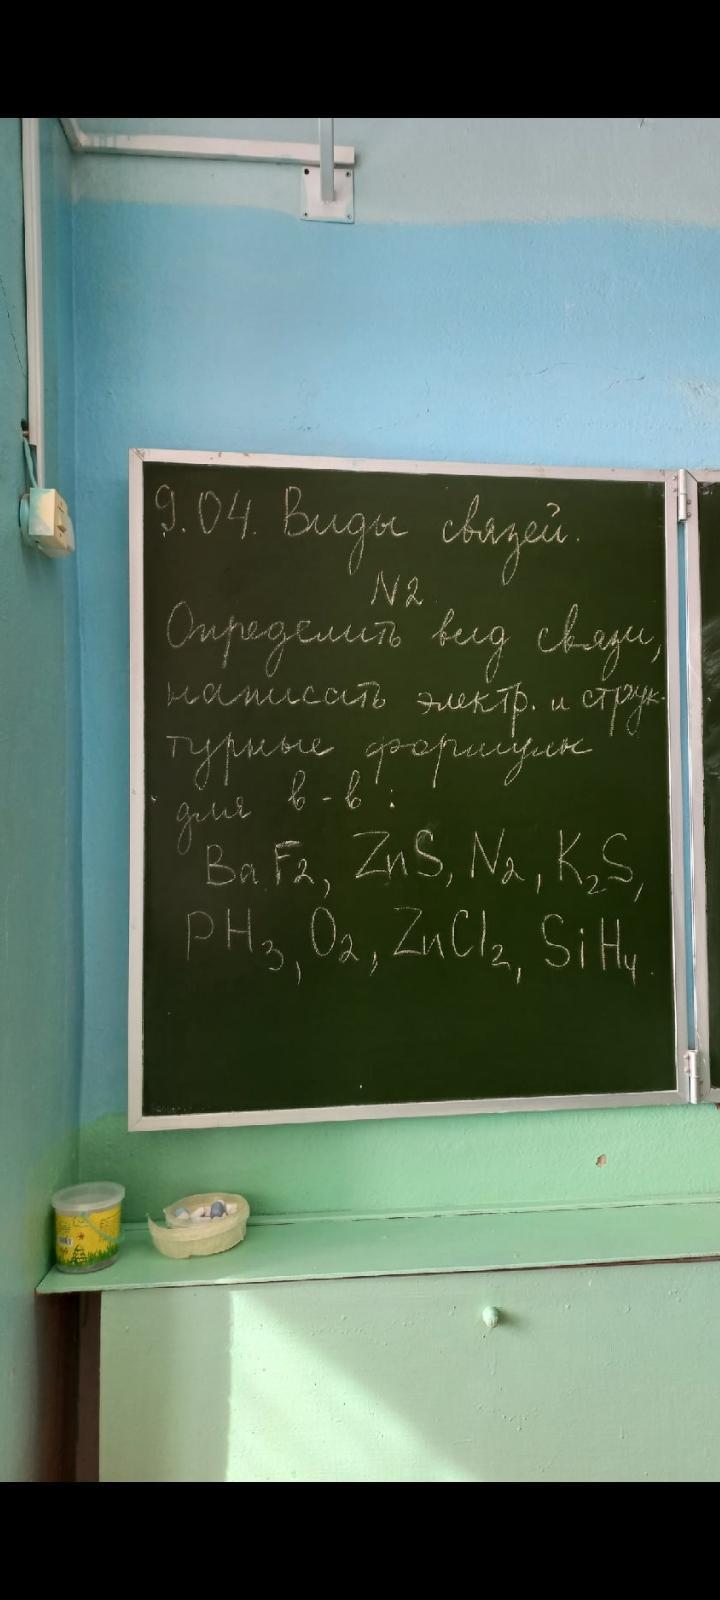 9.04. Виды связей.
N2.
Определить вид связи,
написать электр. и струк-
турные формулы
для в-в:
BaF2, ZnS, N2, K2S,
PH3, O2, ZnCl2, SiH4.